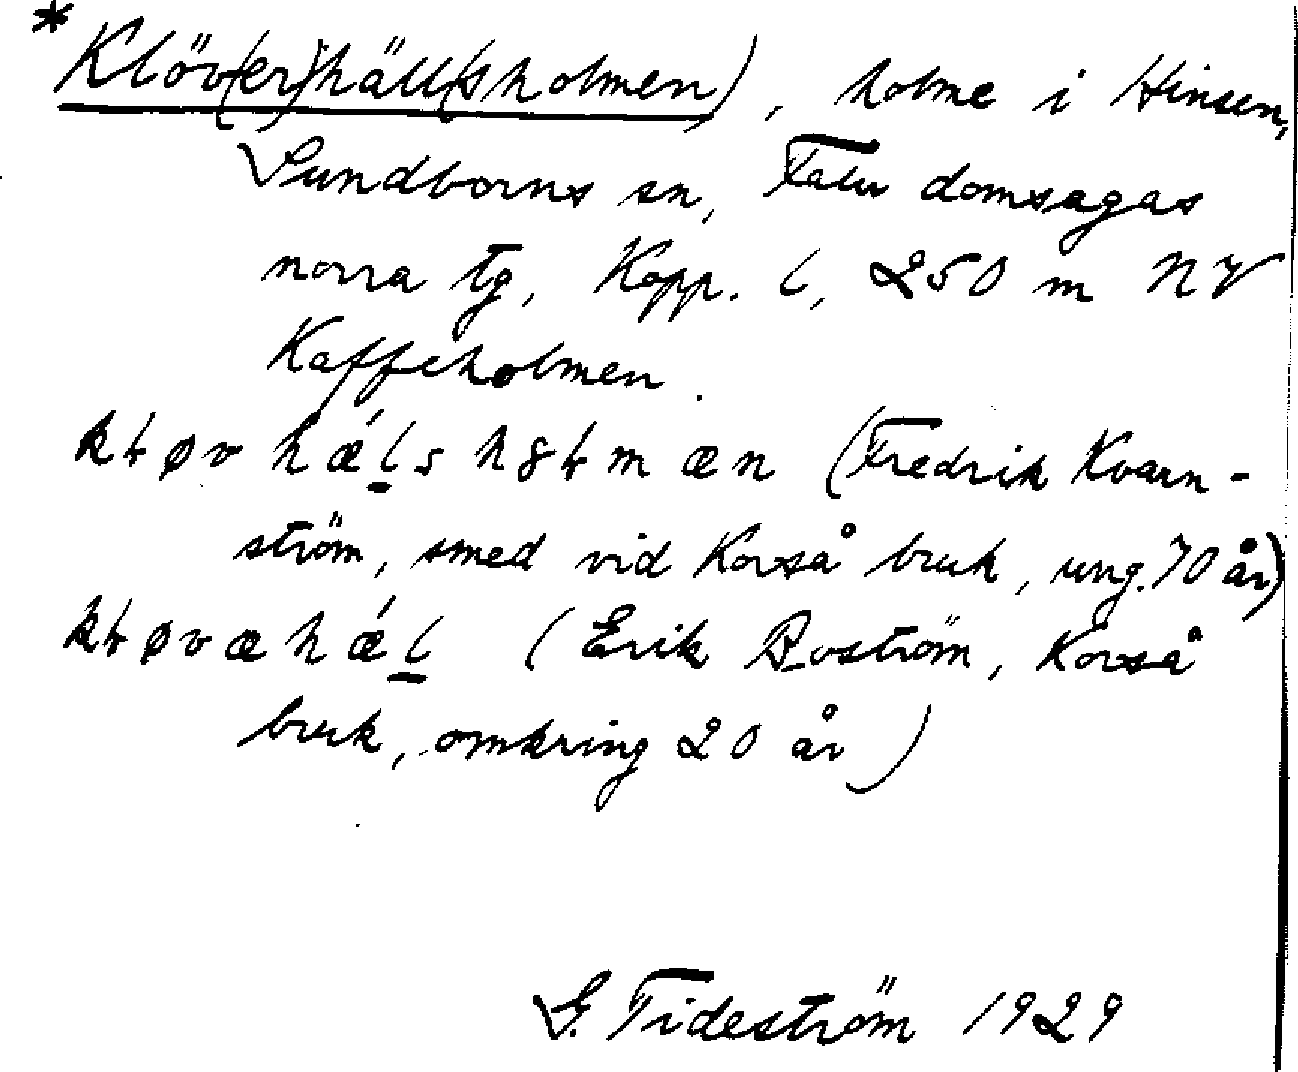 *Klöv(er)häll(sholmen), holme i Hinsen,
Sundborns sn, Falu domsagas
norra tg, Kopp. l, 250 m NV
Kaffeholmen.
kłøv hǽl̲s hȣłmæn (Fredrik Kvarn-
ström, smed vid Korså bruk, ung. 70 år)
kłøvæhǽl̲ (Erik Boström, Korså
bruk, omkring 20 år)
G. Tideström 1929